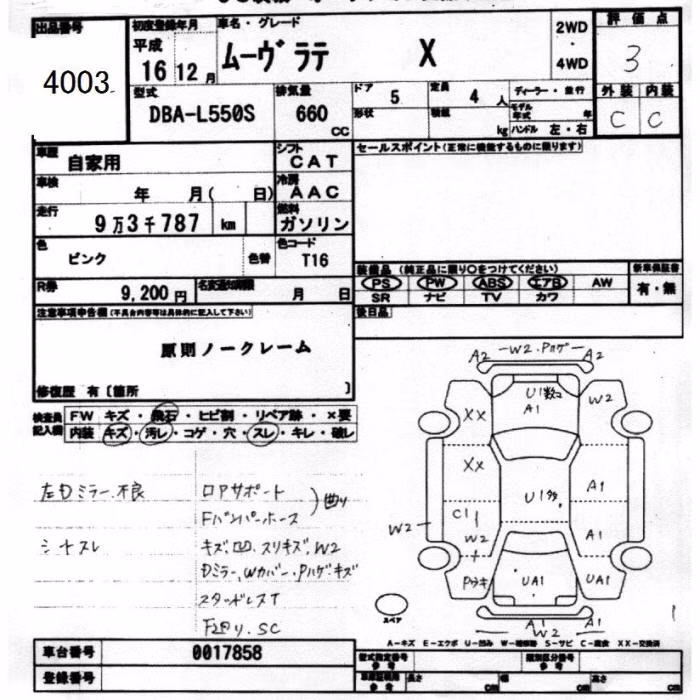 出品番号
4003
初度登録年月
平成
16 12 月
車名・グレード
ムーヴ ラテ X
2WD
・
4WD
評価点
3
外装 内装
C C
型式
DBA-L550S
排気量
660
CC
ドア
5
定員
4 人
形状
積載
kg
ディーラー・並行
モデル年式
年
ハンドル 左・右
車歴
自家用
シフト
CAT
車検
年 月( 日)
冷房
AAC
走行
9万3千787 km
燃料
ガソリン
色
ピンク
色替
色コード
T16
R券
9,200 円
名変通知期限
月 日
セールスポイント(正常に機能するものに限ります)
装備品 (純正品に限り○をつけてください)
PS PW ABS エアB AW
SR ナビ TV カワ
新車保証書
有・無
後日品
注意事項申告欄(不具合内容等は具体的に記入して下さい)
原則ノークレーム
修復歴 有〔箇所 〕
検査員記入欄
FW キズ・飛石・ヒビ割・リペア跡・×要
内装 キズ・汚レ・コゲ・穴・スレ・キレ・破レ
左Dミラー不良
シートスレ
ロアサポート
Fバンパーホース
)曲り
キズ凹、スリキズ、W2
Dミラー、Wカバー、Pハゲ・キズ
スタッドレスT
F廻り、SC
A2 W2、Pハゲ A2
U1数コ
A1
XX
W2
XX
A1
U1多
C1
W2
W2
A1
Pウキ
UA1
UA1
A1
W2
A1
スペア
A-キズ E-エクボ U-凹み W-補修跡 S-サビ C-腐食 XX-交換済
車台番号
0017858
登録番号
型式指定番号
参考
類別区分番号
参考
長さ cm
幅 cm
高さ cm